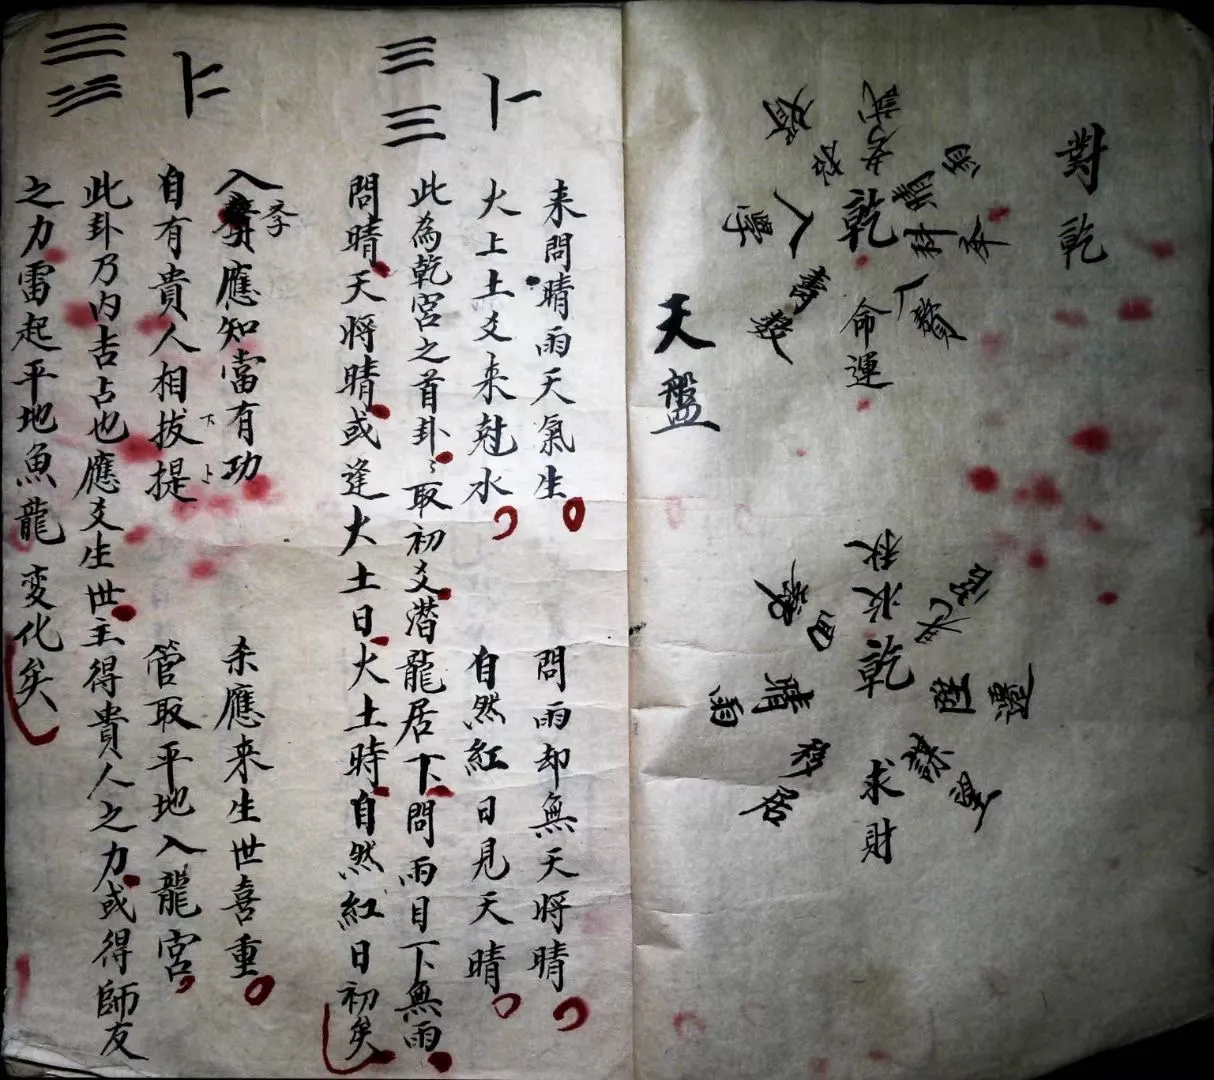 對乾
乾
考試
人學
壽數
命運
乾
求財
移居
晴雨
謀望
陞遷
天盤
卜一
来問晴雨天氣生
問雨却無天將晴
火上土爻来尅水
自然紅日見天晴
此為乾宮之首卦〻取初爻潛龍居下問雨目下無雨
問晴天將晴或逢火土日火土時自然紅日初矣
卜二
入學應知當有功
孝
杀應来生世喜重
自有貴人相拔提
下
上
管取平地入龍宮
此卦乃内吉占也應爻生世主得貴人之力或得師友
之力雷起平地魚龍变化矣